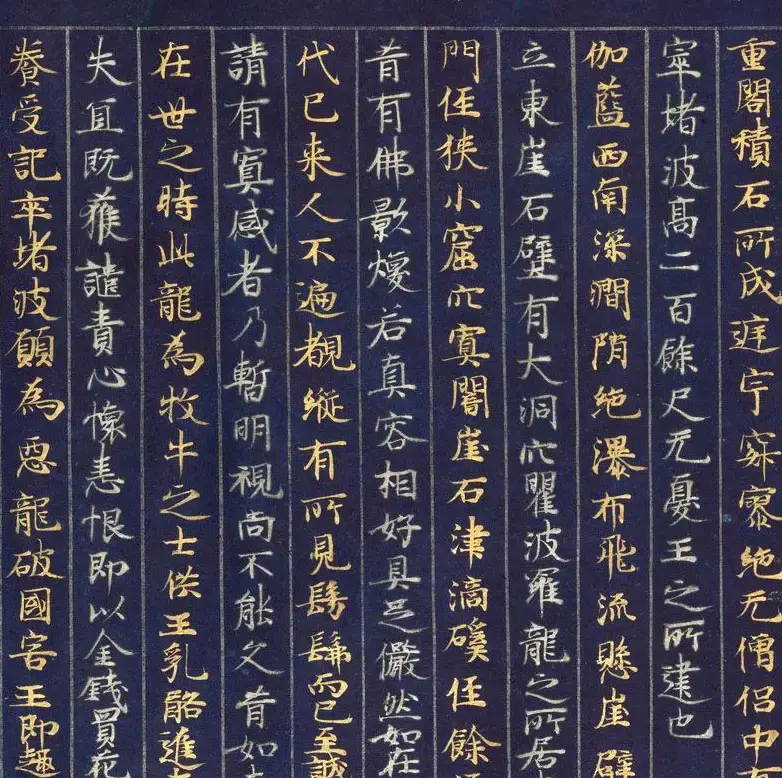 重閣積石所成𨓍宇𡧯寥絶无僧侣中有
窣堵波髙二百餘尺无憂王之所建也
伽藍西南深澗陗絶瀑布飛流懸崖壁
立東崖石壁有大洞穴瞿波羅龍之所居
門俓狹小窟穴㝠闇崖石津滴磎俓餘
昔有佛影煥若真容相好具足儼然如在
代已来人不遍覩縱有所見髣髴而已至誠
請有㝠感者乃暫明視尚不能久昔如
在世之時此龍為牧牛之士供王乳酪進
失宜既獲譴責心懐恚恨即以金錢買花
養受記窣堵波願為惡龍破國害王即趣